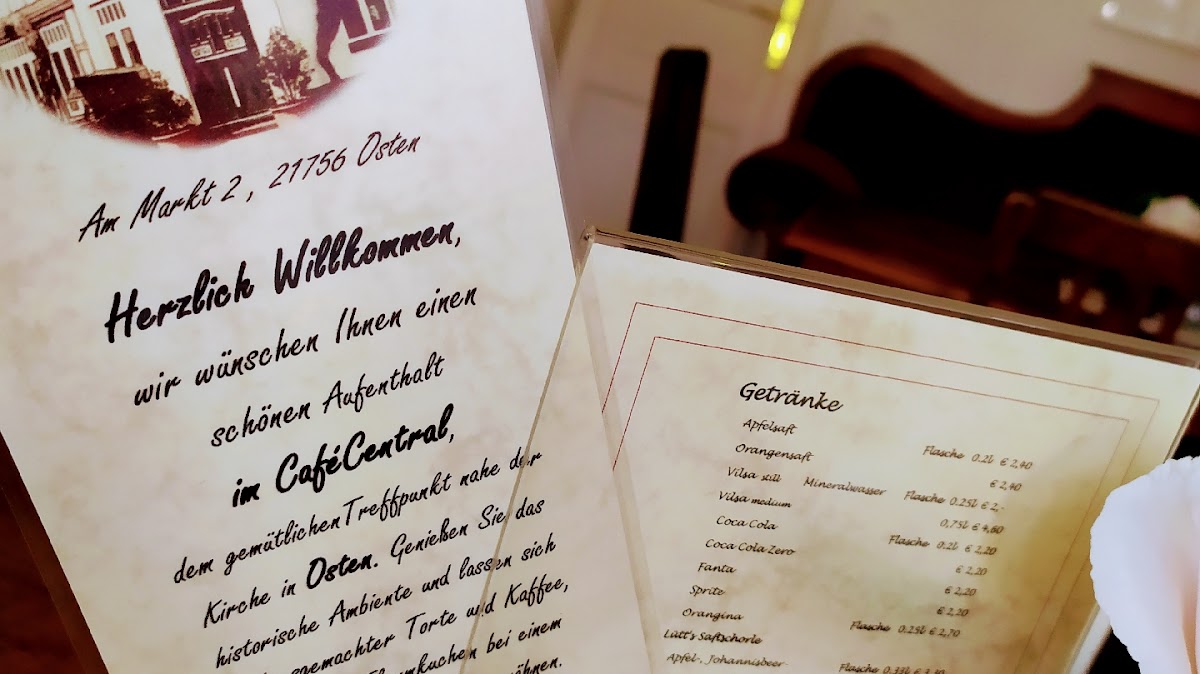 Am Markt 2, 21756 Osten
Herzlich Willkommen,
wir wünschen Ihnen einen
schönen Aufenthalt
im CaféCentral,
dem gemütlichen Treffpunkt nahe der
Kirche in Osten. Genießen Sie das
historische Ambiente und lassen sich
Torte und Kaffee,
bei einem
Getränke
Apfelsaft Flasche 0,2l € 2,40
Orangensaft € 2,40
Vilsa still Mineralwasser Flasche 0,25l € 2,-
Vilsa medium 0,75l € 4,60
Coca Cola Flasche 0,2l € 2,20
Coca Cola Zero € 2,20
Fanta € 2,20
Sprite
Orangina Flasche 0,25l € 2,70
Lütt's Saftschorle
Apfel-, Johannisbeer- Flasche 0,33l